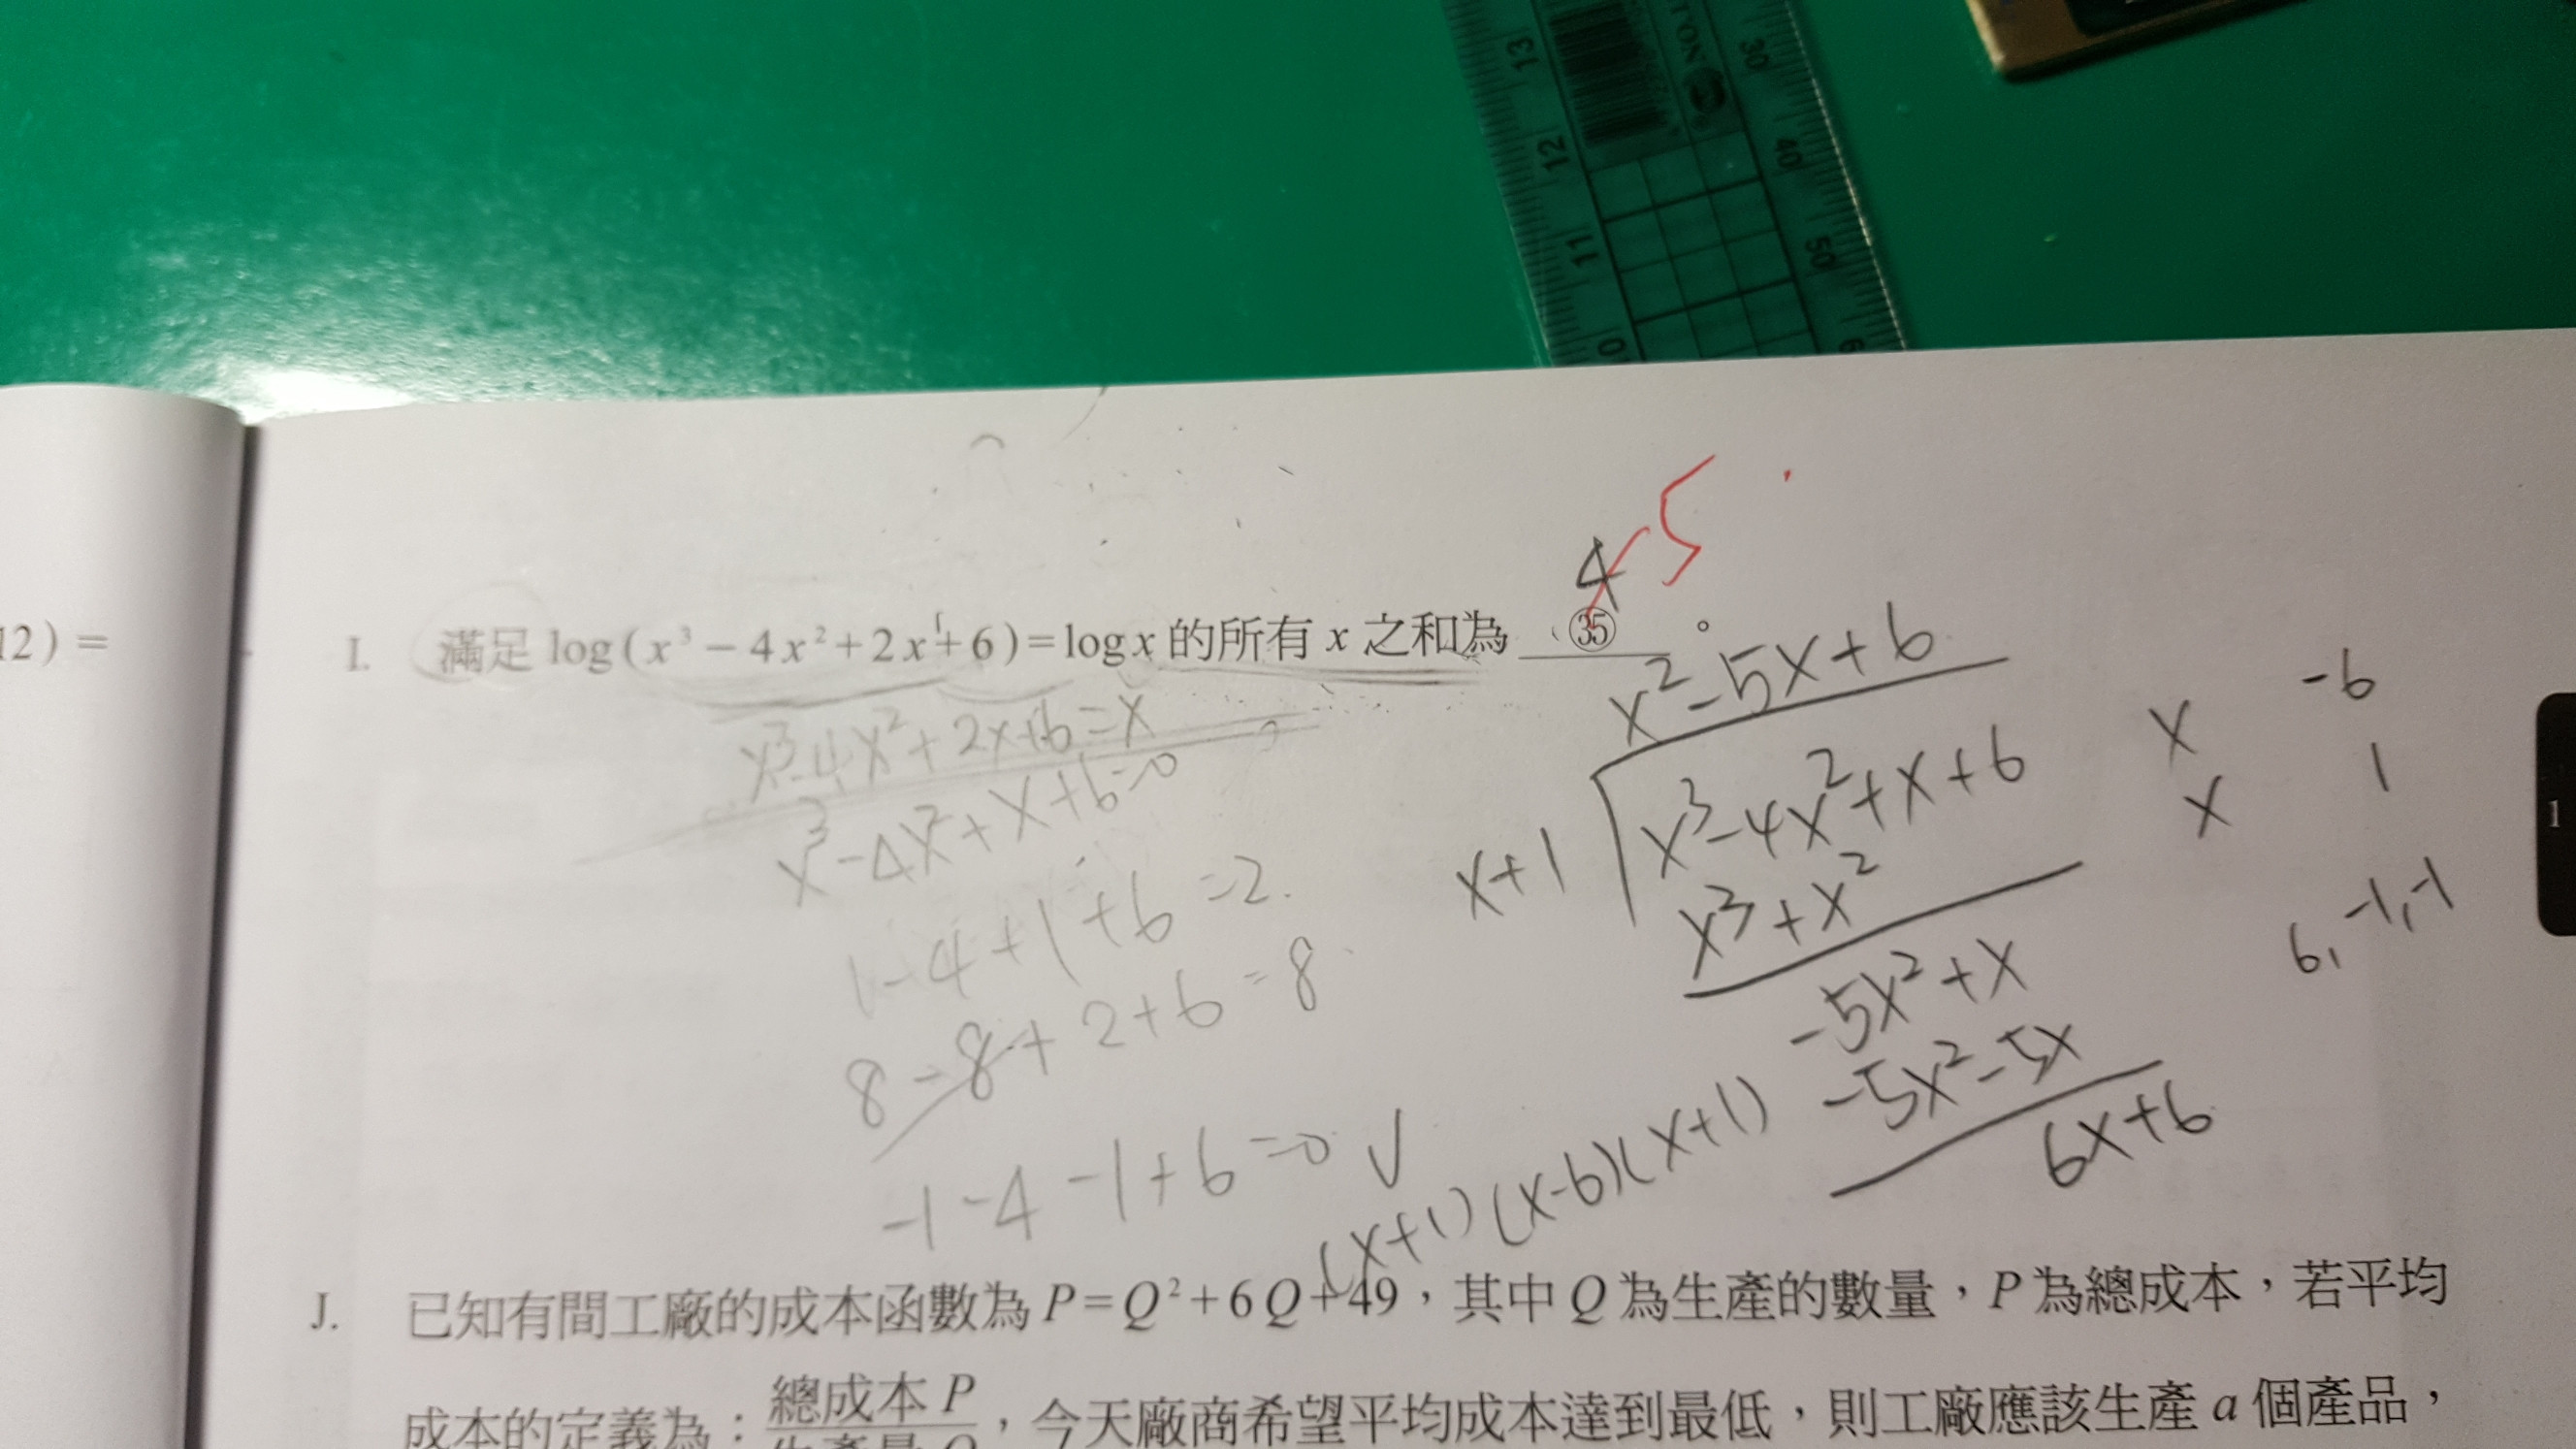 13
12
11
10
30
40
50
4 5
12) =
I. 滿足 log(x³－4x²+2x+6)=log x 的所有 x 之和為 ㉟ 。
x³-4x²+2x+6=x
x³-4x²+x+6=0
1-4+1+6=2.
8-8+2+6=8
-1-4-1+6=0 √
x²-5x+6
x+1 x³-4x²+x+6
x³+x²
-5x²+x
-5x²-5x
6x+6
x -6
x 1
6,-1,-1
(x+1)(x-6)(x+1)
1
J. 已知有間工廠的成本函數為 P=Q²+6Q+49，其中 Q 為生產的數量，P 為總成本，若平均
成本的定義為：總成本 P，今天廠商希望平均成本達到最低，則工廠應該生產 a 個產品，